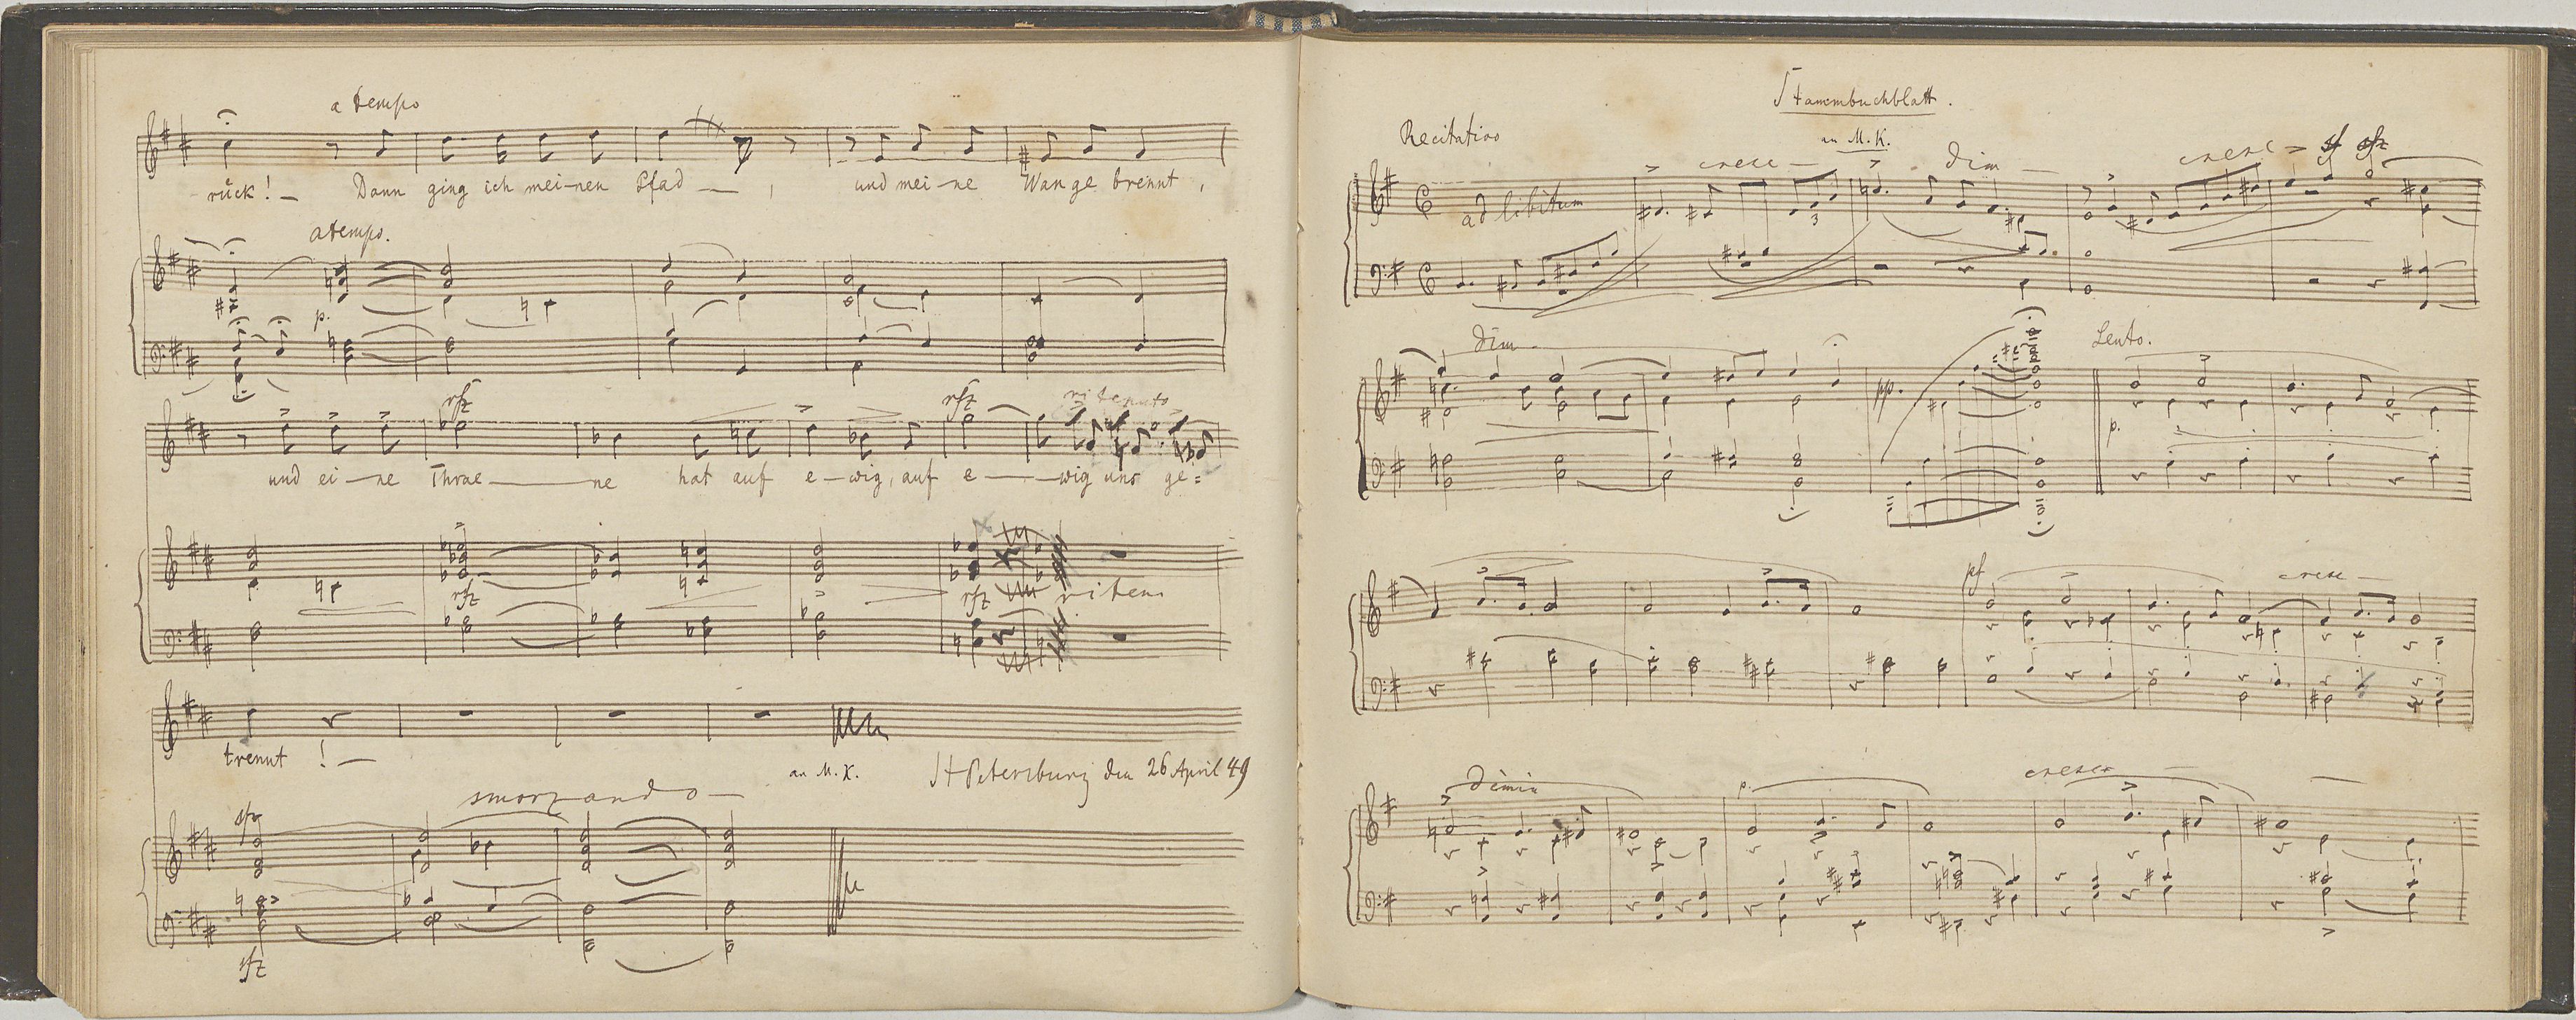 a tempo
rück! — Dann ging ich mei-nen Pfad —, und mei-ne Wange brennt,
a tempo.
p.
rfz rfz ritenuto
und ei-ne Thrae——ne hat auf e-wig, auf e——wig uns ge=
rfz rfz riten
trennt! —
an M. K. St Petersburg den 26 April 49
smorzando —
sfz
Stammbuchblatt.
an M. K.
Recitativo
cresc — dim — cresc sf sfz
ad libitum
3
dim. pp. Lento.
p.
pf cresc —
dimin p. cresc —